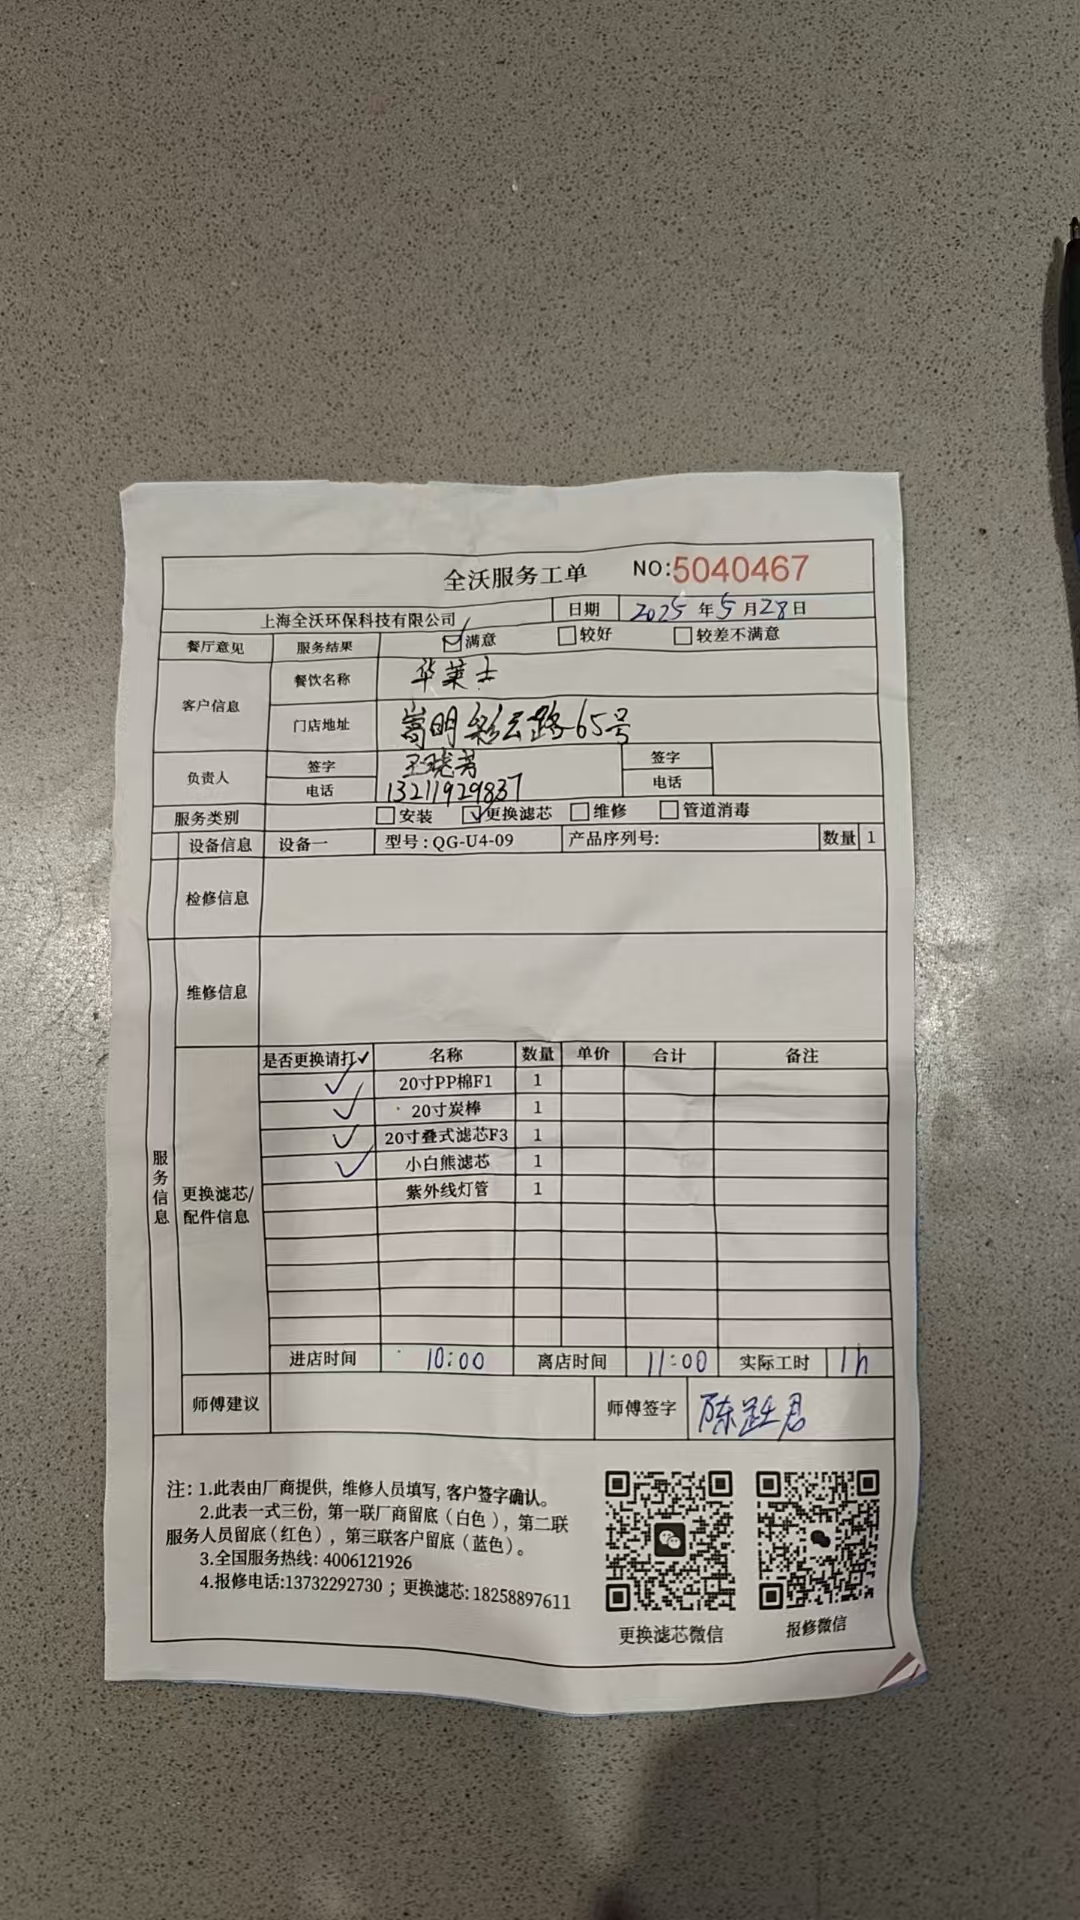 全沃服务工单 NO:5040467
上海全沃环保科技有限公司 日期 2025 年 5 月 28 日
餐厅意见 服务结果 ☑满意 □较好 □较差不满意
客户信息 餐饮名称 华莱士
门店地址 嵩明彩云路65号
负责人 签字 王晓芳 签字
电话 13211929837 电话
服务类别 □安装 ☑更换滤芯 □维修 □管道消毒
设备信息 设备一 型号:QG-U4-09 产品序列号: 数量 1
检修信息
维修信息
服务信息
更换滤芯/配件信息
是否更换请打✓ 名称 数量 单价 合计 备注
✓ 20寸PP棉F1 1
✓ 20寸炭棒 1
✓ 20寸叠式滤芯F3 1
✓ 小白熊滤芯 1
紫外线灯管 1
进店时间 10:00 离店时间 11:00 实际工时 1h
师傅建议 师傅签字 陈君
注: 1.此表由厂商提供, 维修人员填写, 客户签字确认。
2.此表一式三份, 第一联厂商留底(白色), 第二联
服务人员留底(红色), 第三联客户留底(蓝色)。
3.全国服务热线: 4006121926
4.报修电话:13732292730 ; 更换滤芯: 18258897611
更换滤芯微信 报修微信